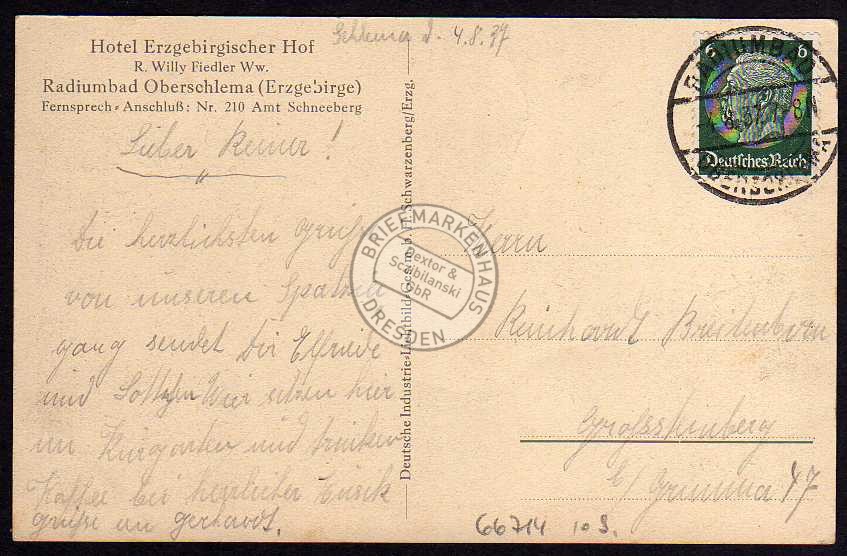 Hotel Erzgebirgischer Hof
R. Willy Fiedler Ww.
Radiumbad Oberschlema (Erzgebirge)
Fernsprech-Anschluß: Nr. 210 Amt Schneeberg
Schlema d. 4.8.37
6 6
Deutsches Reich
RADIUMBAD
OBERSCHLEMA
Lieber Reiner!
Die herzlichsten Grüße
von unseren Spazier
gang sendet Dir Elfriede
und Wir sitzen hier
im Kurgarten und trinken
Kaffee bei herrlicher Musik
grüße an Gerhardt.
Deutsche Industrie-Lichtbild-Ges. m. b. H. Schwarzenberg/Erzg.
BRIEFMARKENHAUS
Dextor &
Scalbilanski
GbR
DRESDEN
Herrn
Reinhardt Breitenborn
Grosssteinberg
b/ Grimma 47
66714 10 S.